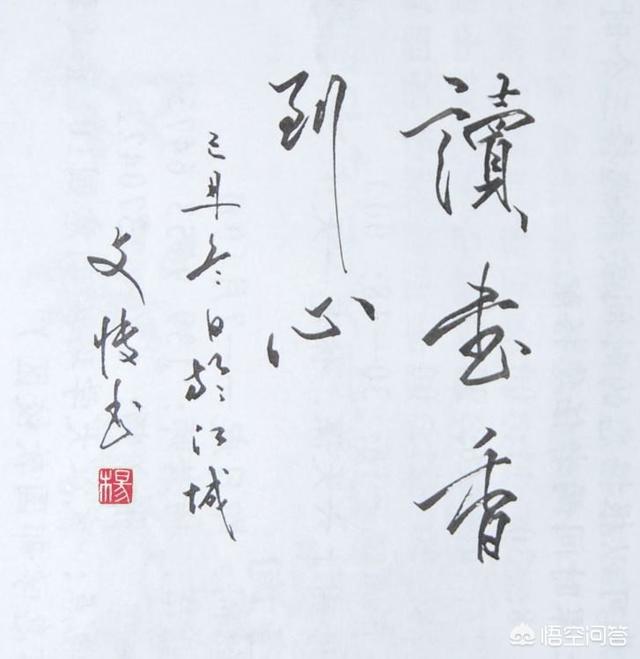 讀書香
到心
己丑冬日於江城
文 书
楊
悟空问答